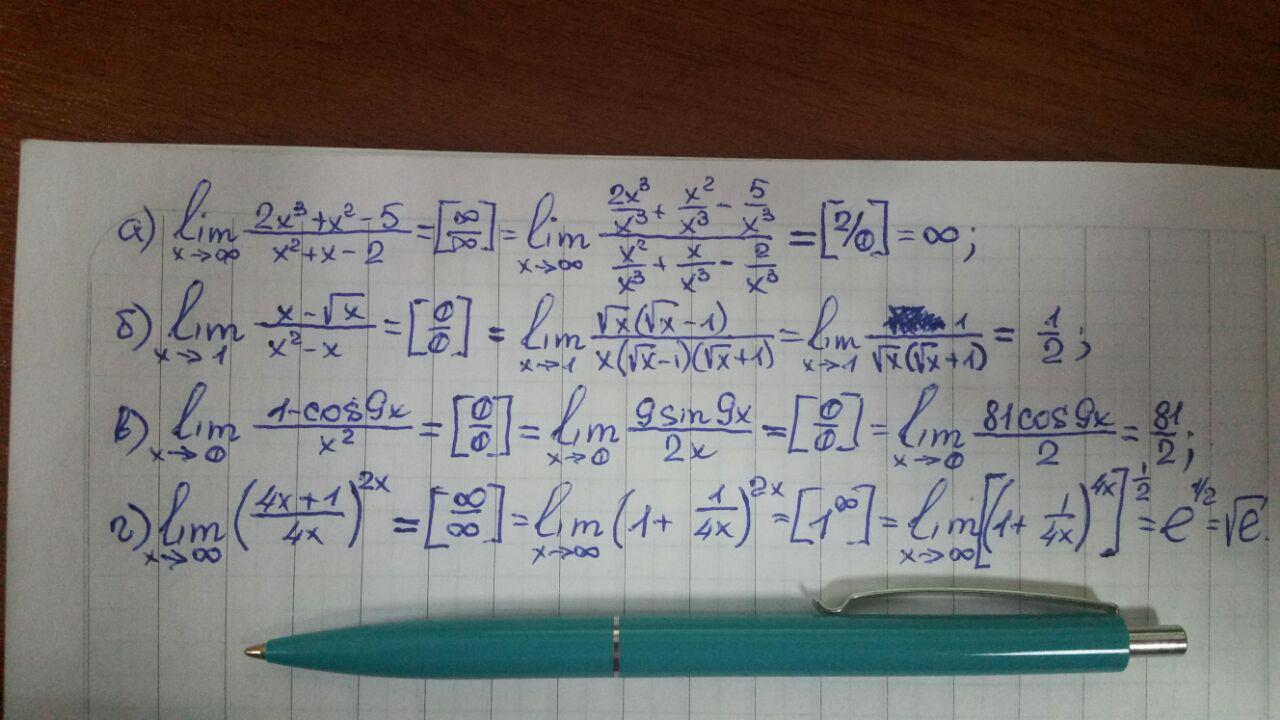 а) lim x→∞ (2x³+x²-5)/(x²+x-2) = [∞/∞] = lim x→∞ (2x³/x³ + x²/x³ - 5/x³)/(x²/x³ + x/x³ - 2/x³) = [2/0] = ∞;
б) lim x→1 (x-√x)/(x²-x) = [0/0] = lim x→1 (√x(√x-1))/(x(√x-1)(√x+1)) = lim x→1 1/(√x(√x+1)) = 1/2;
в) lim x→0 (1-cos9x)/x² = [0/0] = lim x→0 (9sin9x)/(2x) = [0/0] = lim x→0 (81cos9x)/2 = 81/2;
г) lim x→∞ ((4x+1)/(4x))^(2x) = [∞/∞] = lim x→∞ (1+ 1/(4x))^(2x) = [1^∞] = lim x→∞ [(1+ 1/(4x))^(4x)]^(1/2) = e^(1/2) = √e.